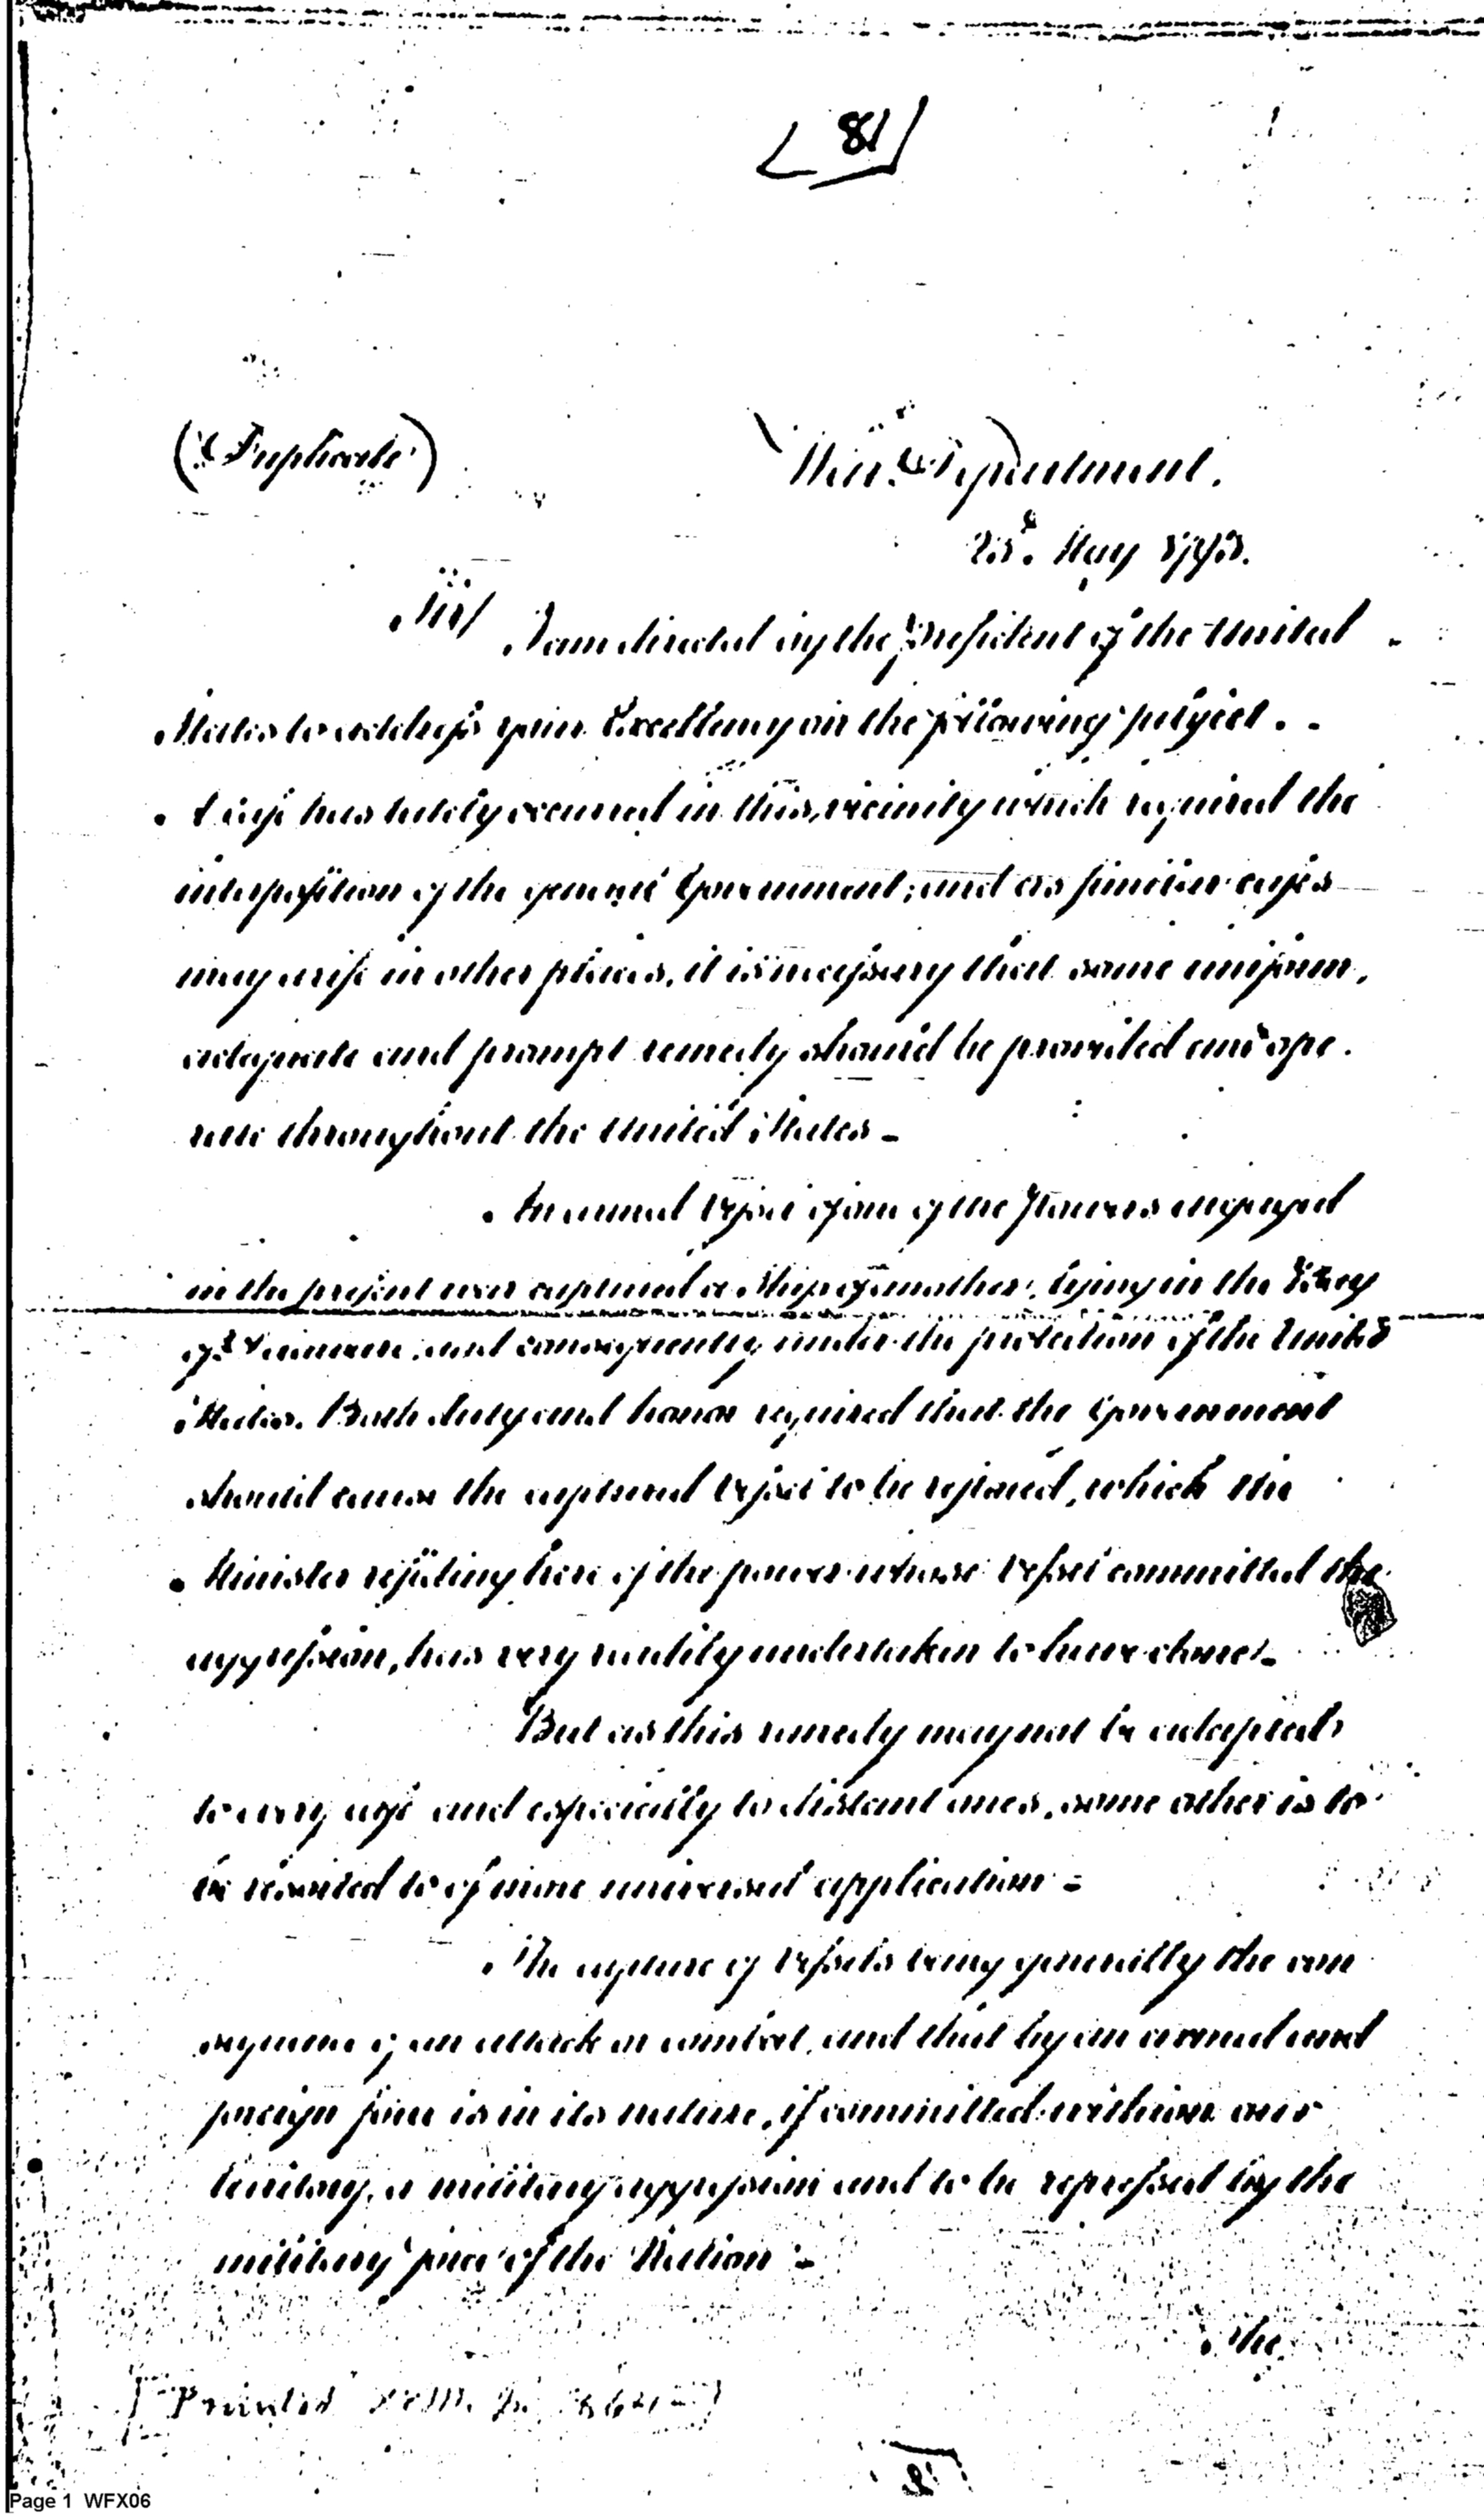 81
(Duplicate)
War Department.
23d. May 1793.
Sir/ I am directed by the President of the United
States to address your Excellency on the following subject.
A case has lately occurred in this vicinity which required the
interposition of the general Government; and as similar cases
may arise in other places, it is necessary that some uniform,
adequate and prompt remedy should be provided and ope-
rate throughout the United States -
An armed Vessel of one of the Powers engaged
in the present war captured a Ship of another, lying in the Bay
of Delaware, and consequently under the protection of the United
States. Both duty and honor required that the Government
should cause the captured Vessel to be restored, which the
Minister residing here of the power whose Vessel committed the
aggression, has very readily undertaken to have done. -
But as this remedy may not be adapted
to every case and especially to distant ones, some other is to
be resorted to of more universal application -
The capture of Vessels being generally the con
sequence of an attack or combat, and that by an armed and
foreign force is in its nature, if committed within our
territory, a military aggression and to be repressed by the
military force of the Nation -
The
Printed
Page 1 WFX06